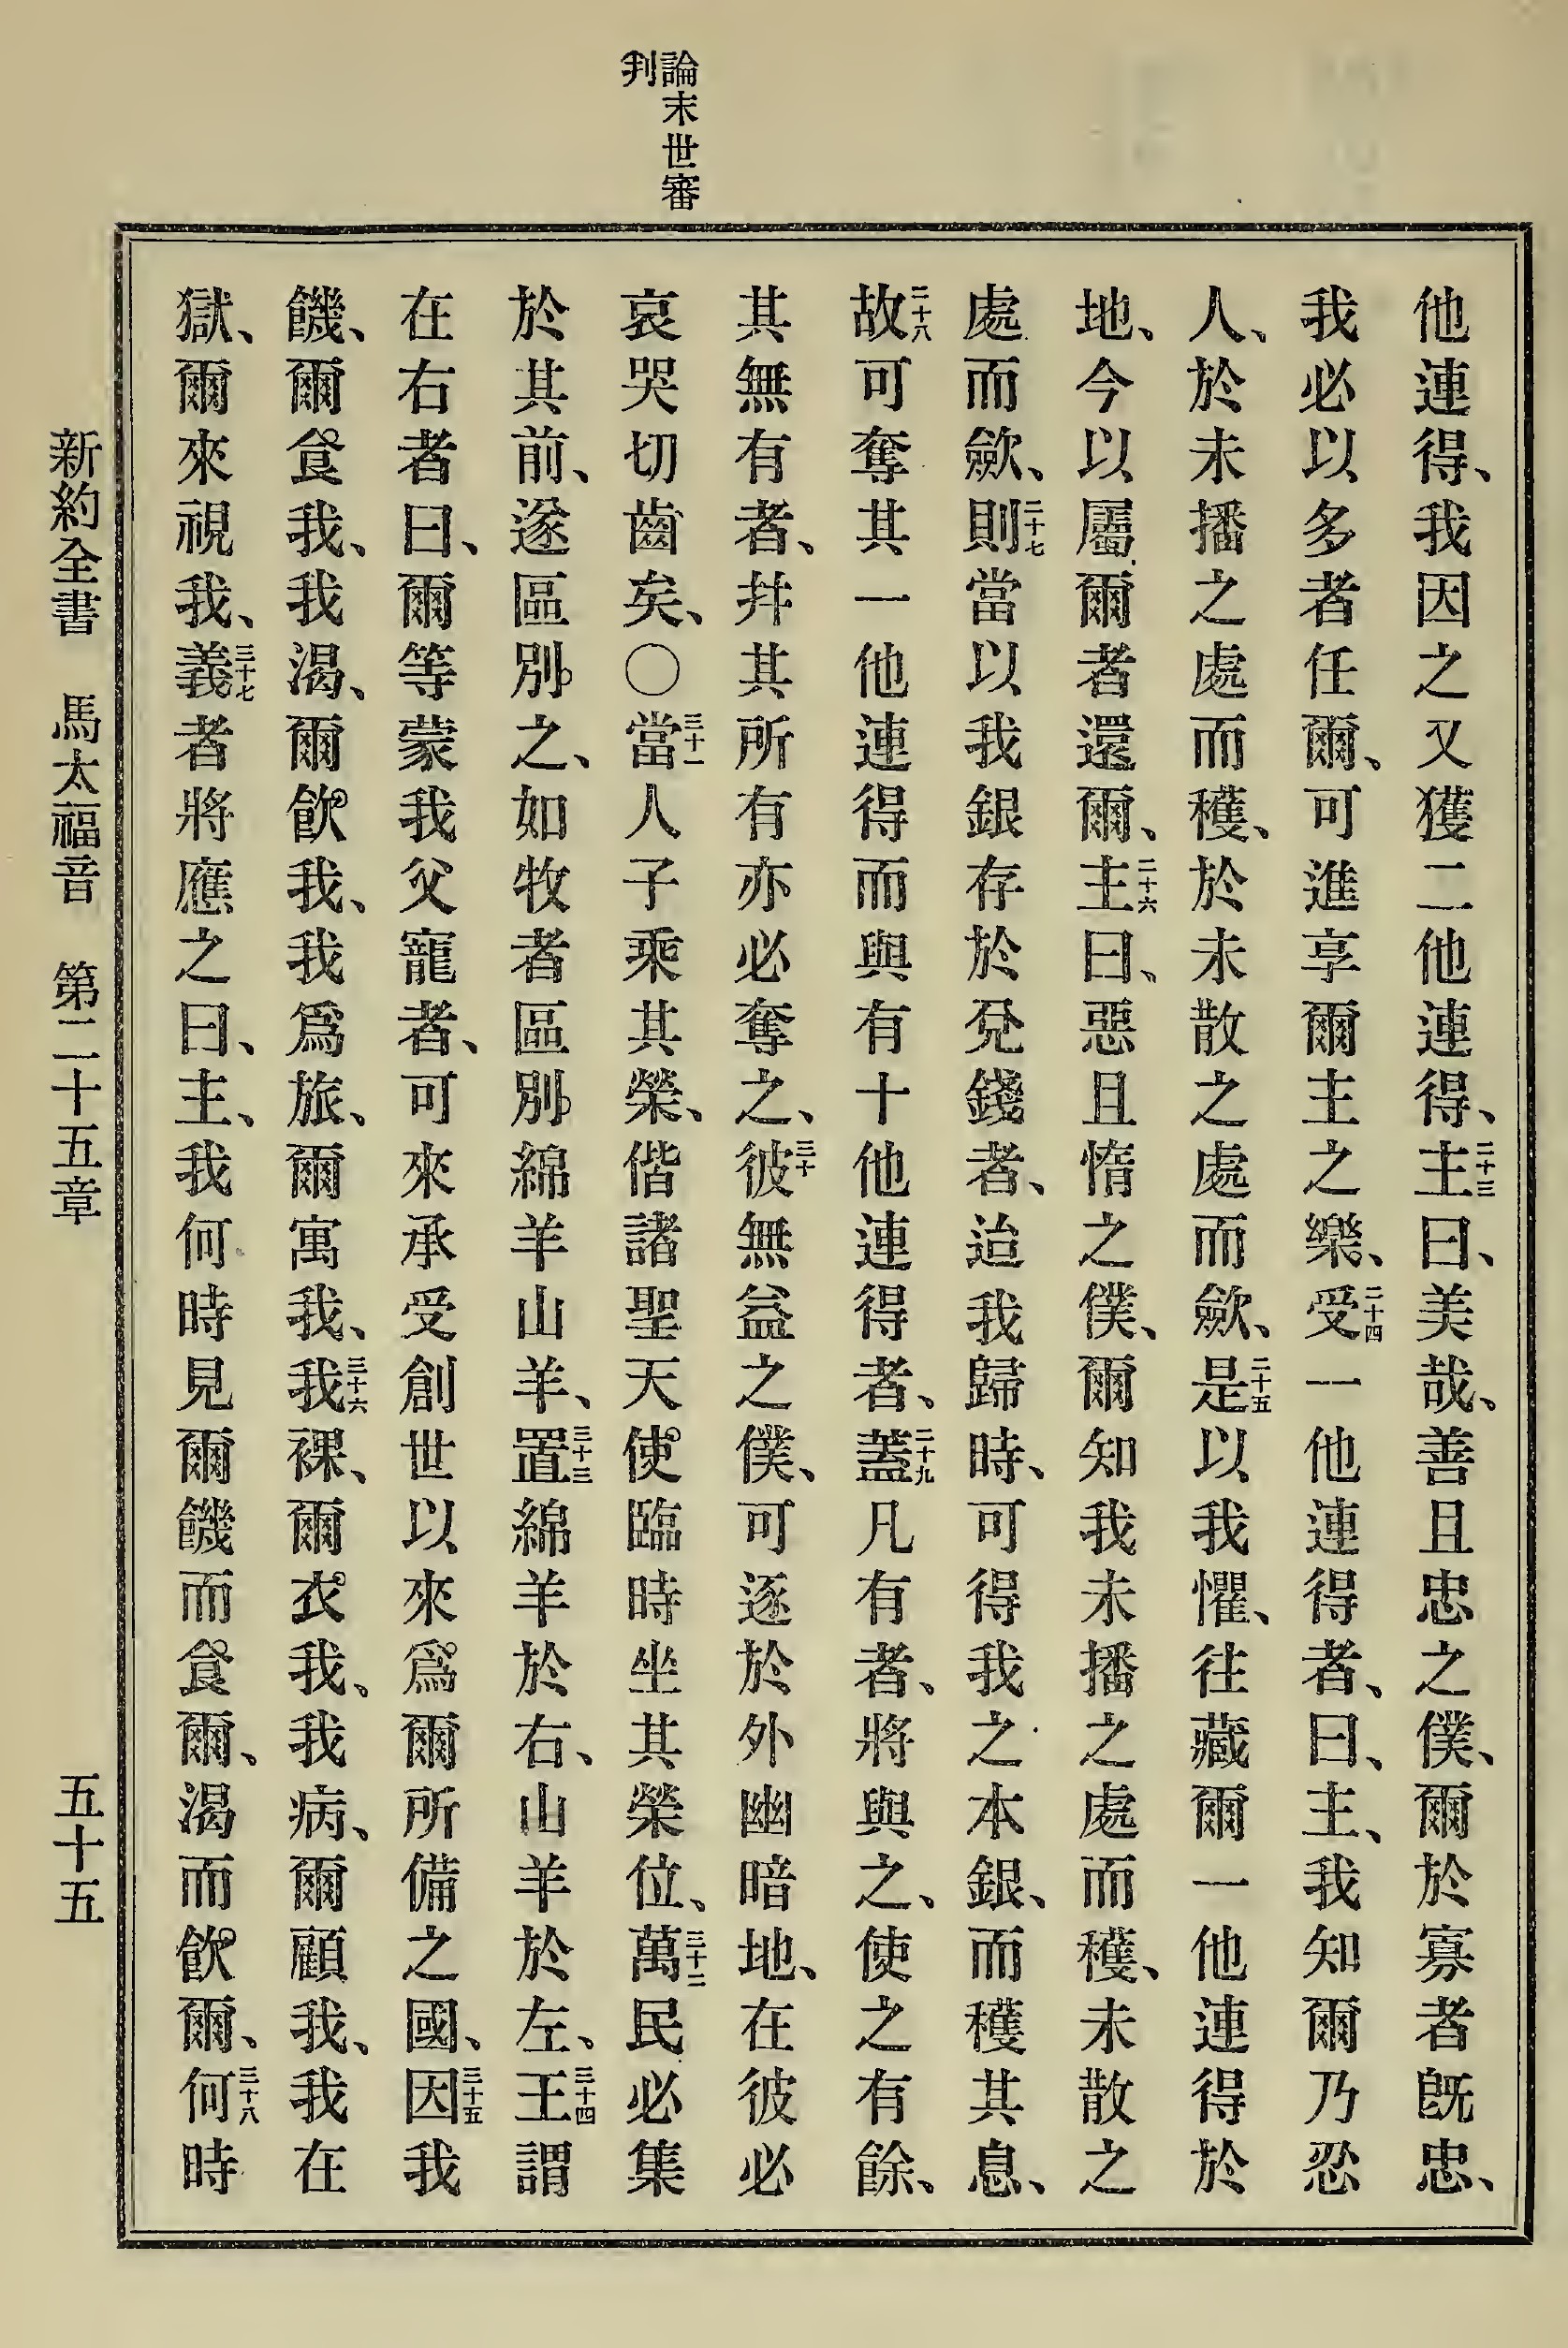 論末世審
判
他連得、我因之又獲二他連得、二十三主曰、美哉、善且忠之僕、爾於寡者旣忠、
我必以多者任爾、可進享爾主之樂、二十四受一他連得者、曰、主、我知爾乃忍
人、於未播之處而穫、於未散之處而歛、二十五是以我懼、往藏爾一他連得於
地、今以屬爾者還爾、二十六主曰、惡且惰之僕、爾知我未播之處而穫、未散之
處而歛、二十七則當以我銀存於兌錢者、迨我歸時、可得我之本銀、而穫其息、
二十八故可奪其一他連得而與有十他連得者、二十九蓋凡有者、將與之、使之有餘、
其無有者、幷其所有亦必奪之、三十彼無益之僕、可逐於外幽暗地、在彼必
哀哭切齒矣、〇三十一當人子乘其榮、偕諸聖天使臨時坐其榮位、三十二萬民必集
於其前、遂區別之、如牧者區別綿羊山羊、三十三置綿羊於右、山羊於左、三十四王謂
在右者曰、爾等蒙我父寵者、可來承受創世以來爲爾所備之國、三十五因我
饑、爾食我、我渴、爾飮我、我爲旅、爾寓我、三十六我裸、爾衣我、我病、爾顧我、我在
獄、爾來視我、三十七義者將應之曰、主、我何時見爾饑而食爾、渴而飮爾、三十八何時
新約全書 馬太福音 第二十五章 五十五